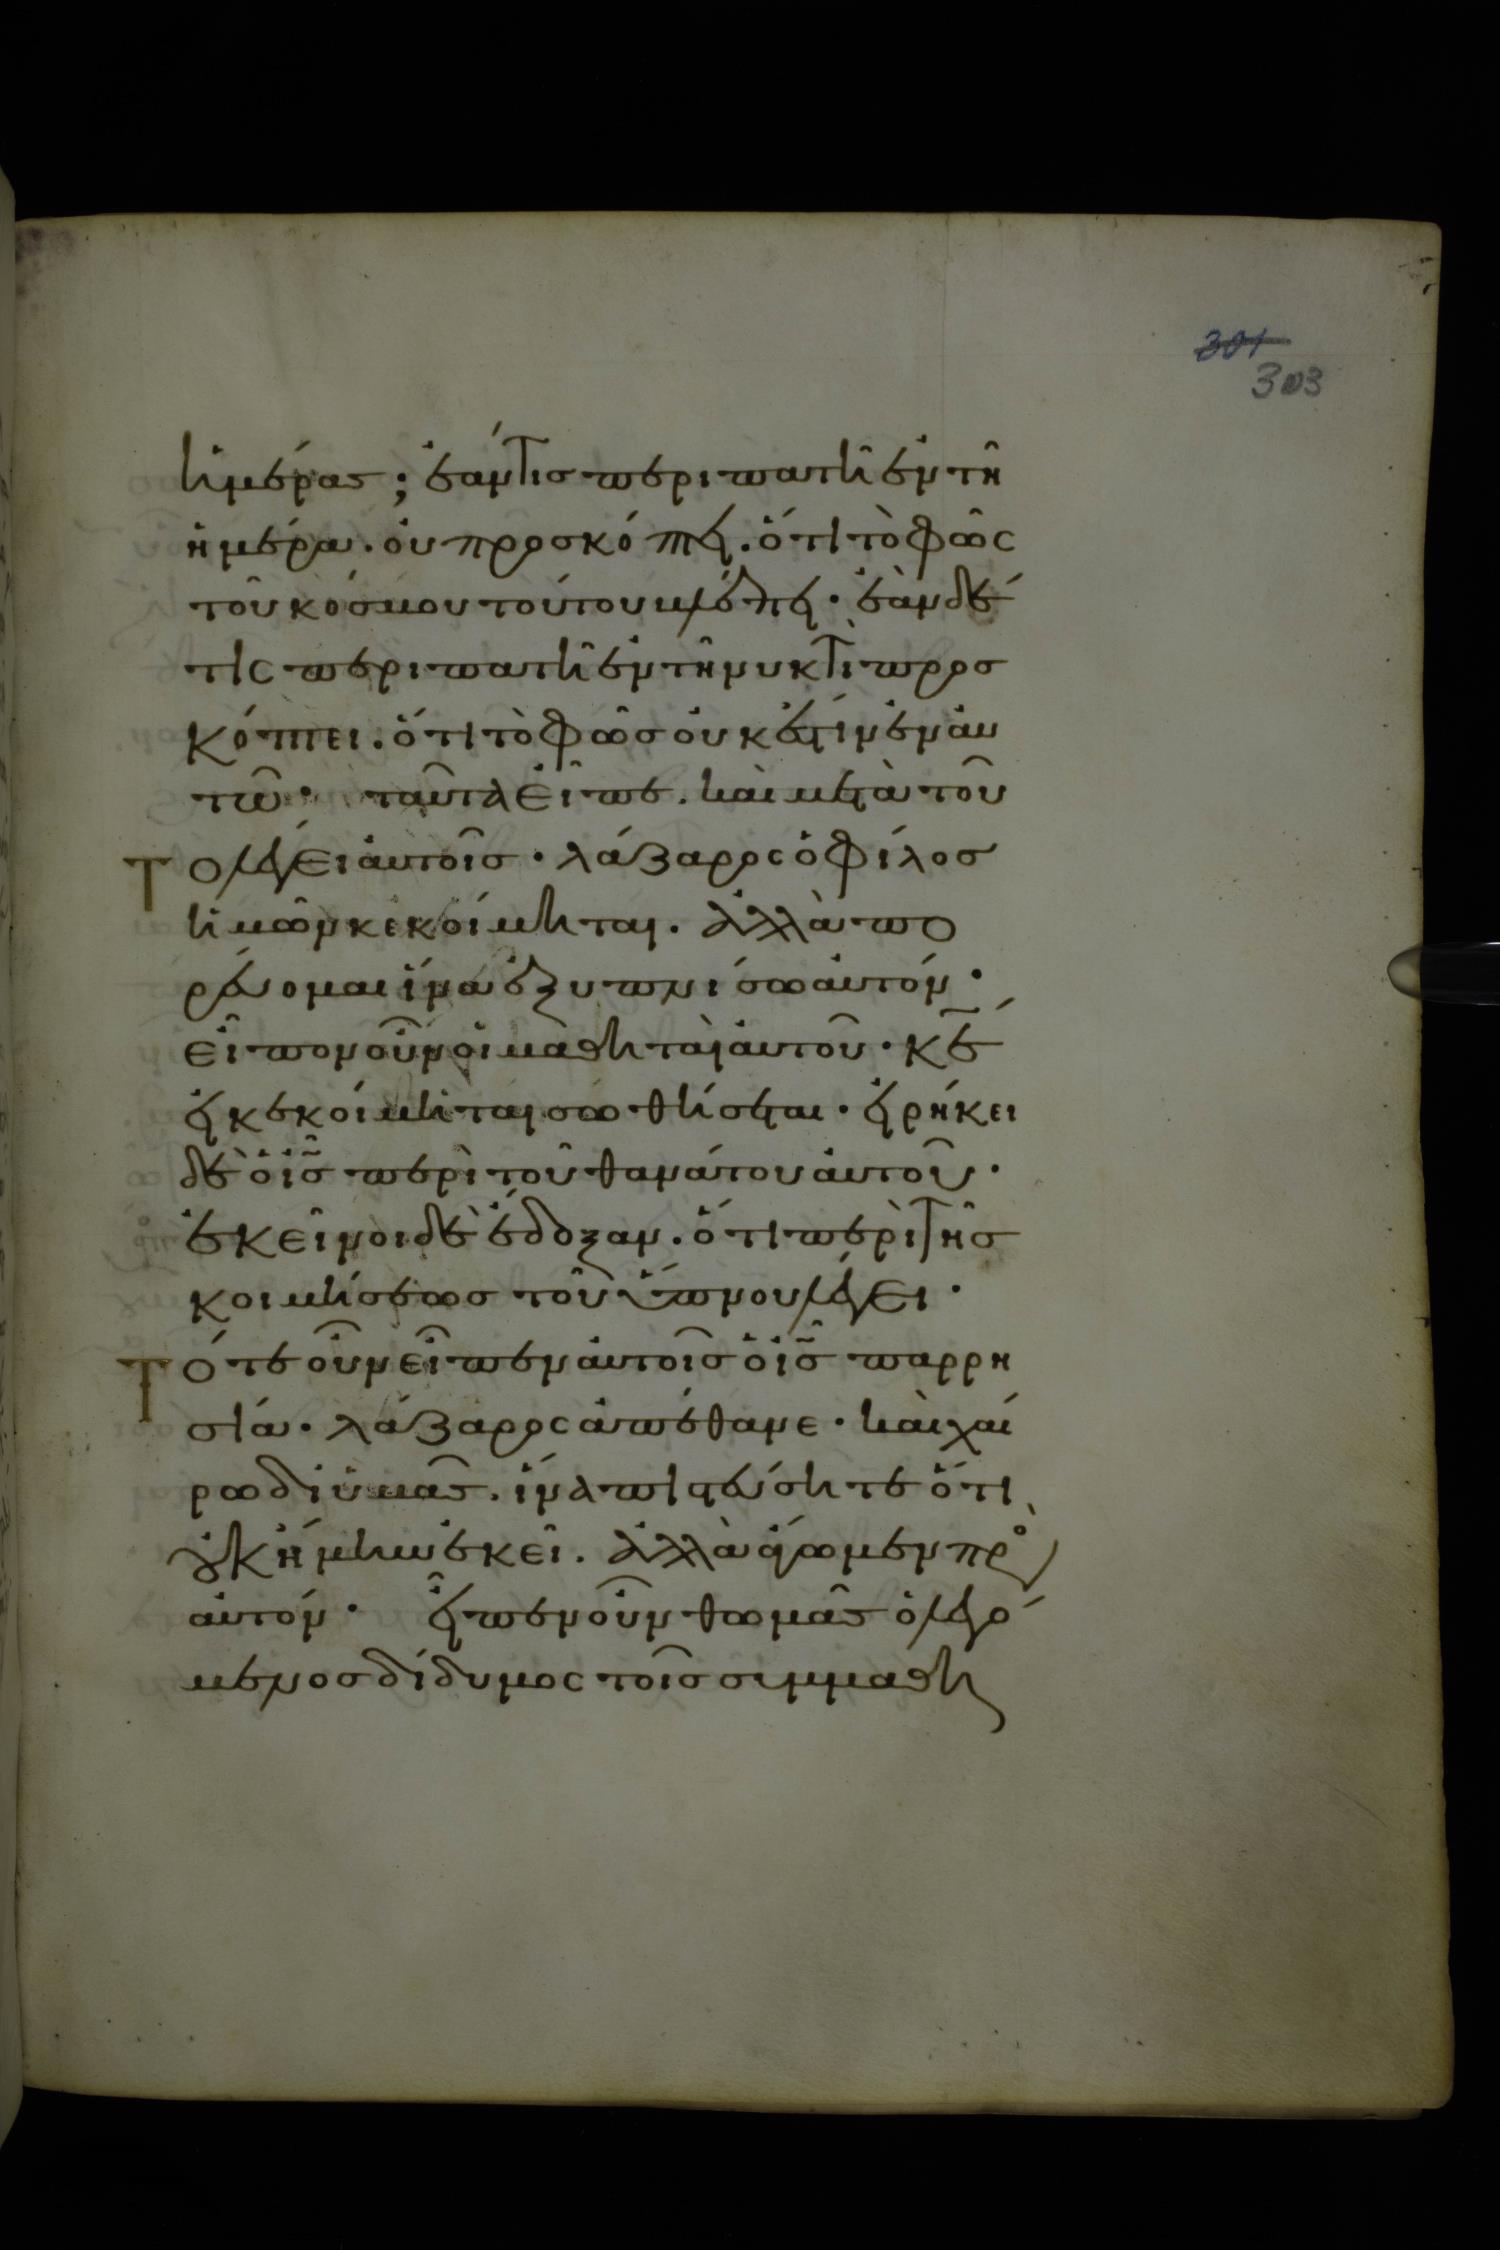 301
303
ἡμέρας; ἐάν τις περιπατῆ ἐν τῆ
ἡμέρα. οὐ προσκόπτει. ὅτι τὸ φῶς
τοῦ κόσμου τούτου βλέπει· ἐὰν δέ
τις περιπατῆ ἐν τῆ νυκτὶ προσ
κόπτει. ὅτι τὸ φῶς οὐκ ἔστιν ἐν αὐ
τῶ· ταῦτα εἶπε. καὶ μετὰ τοῦ
Το λέγει αὐτοῖς· λάζαρος ὁ φίλος
ἡμῶν κεκοίμηται. ἀλλὰ πο
ρεύομαι ἵνα ἐξυπνίσω αὐτόν·
εἶπον οὖν οἱ μαθηταὶ αὐτοῦ· κ̅ε̅
εἰ κεκοίμηται σωθήσεται· εἰρήκει
δὲ ὁ ι̅ς̅ περὶ τοῦ θανάτου αὐτοῦ·
ἐκεῖνοι δὲ ἔδοξαν. ὅτι περὶ τῆς
κοιμήσεως τοῦ ὕπνου λέγει·
Τότε οὖν εἶπεν αὐτοῖς ὁ ι̅ς̅ παρρη
σία· λάζαρος ἀπέθανε· καὶ χαί
ρω δι ὑμᾶς. ἵνα πιστεύσητε ὅτι
οὐκ ἤμην ἐκεῖ. ἀλλὰ ἄγωμεν πρὸ
αὐτόν· εἶπεν οὖν θωμᾶς ὁ λεγό
μενος δίδυμος τοῖς συμμαθη